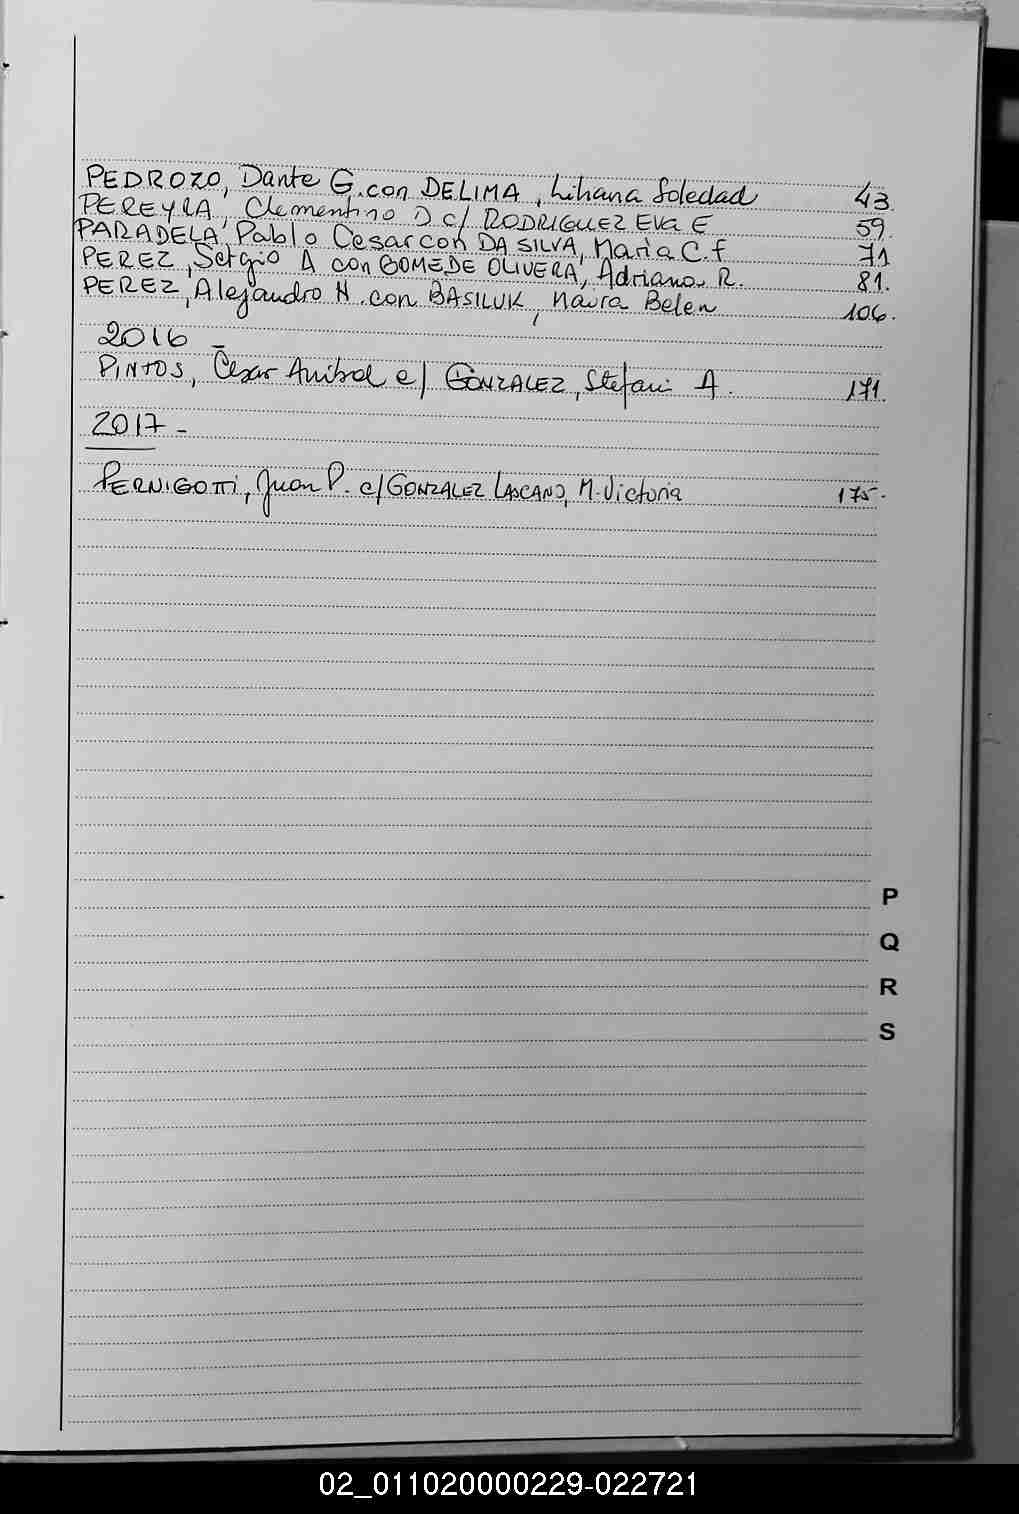 PEDROZO, Dante G. con DELIMA, Liliana Soledad 43.
PEREYRA, Clementino D c/ RODRIGUEZ EVa E 59.
PARADELA, Pablo Cesar con DA SILVA, Maria C. f 71
PEREZ, Sergio A con GOMEDE OLIVERA, Adriana R. 81.
PEREZ, Alejandro H. con BASILUK, Naira Belen 106.
2016 -
PINTOS, Cesar Anibal c/ GONZALEZ, Stefani A. 171.
2017 -
PERNIGOTTI, Juan P. c/ GONZALEZ LASCANO, M. Victoria 175.
P
Q
R
S
02_011020000229-022721